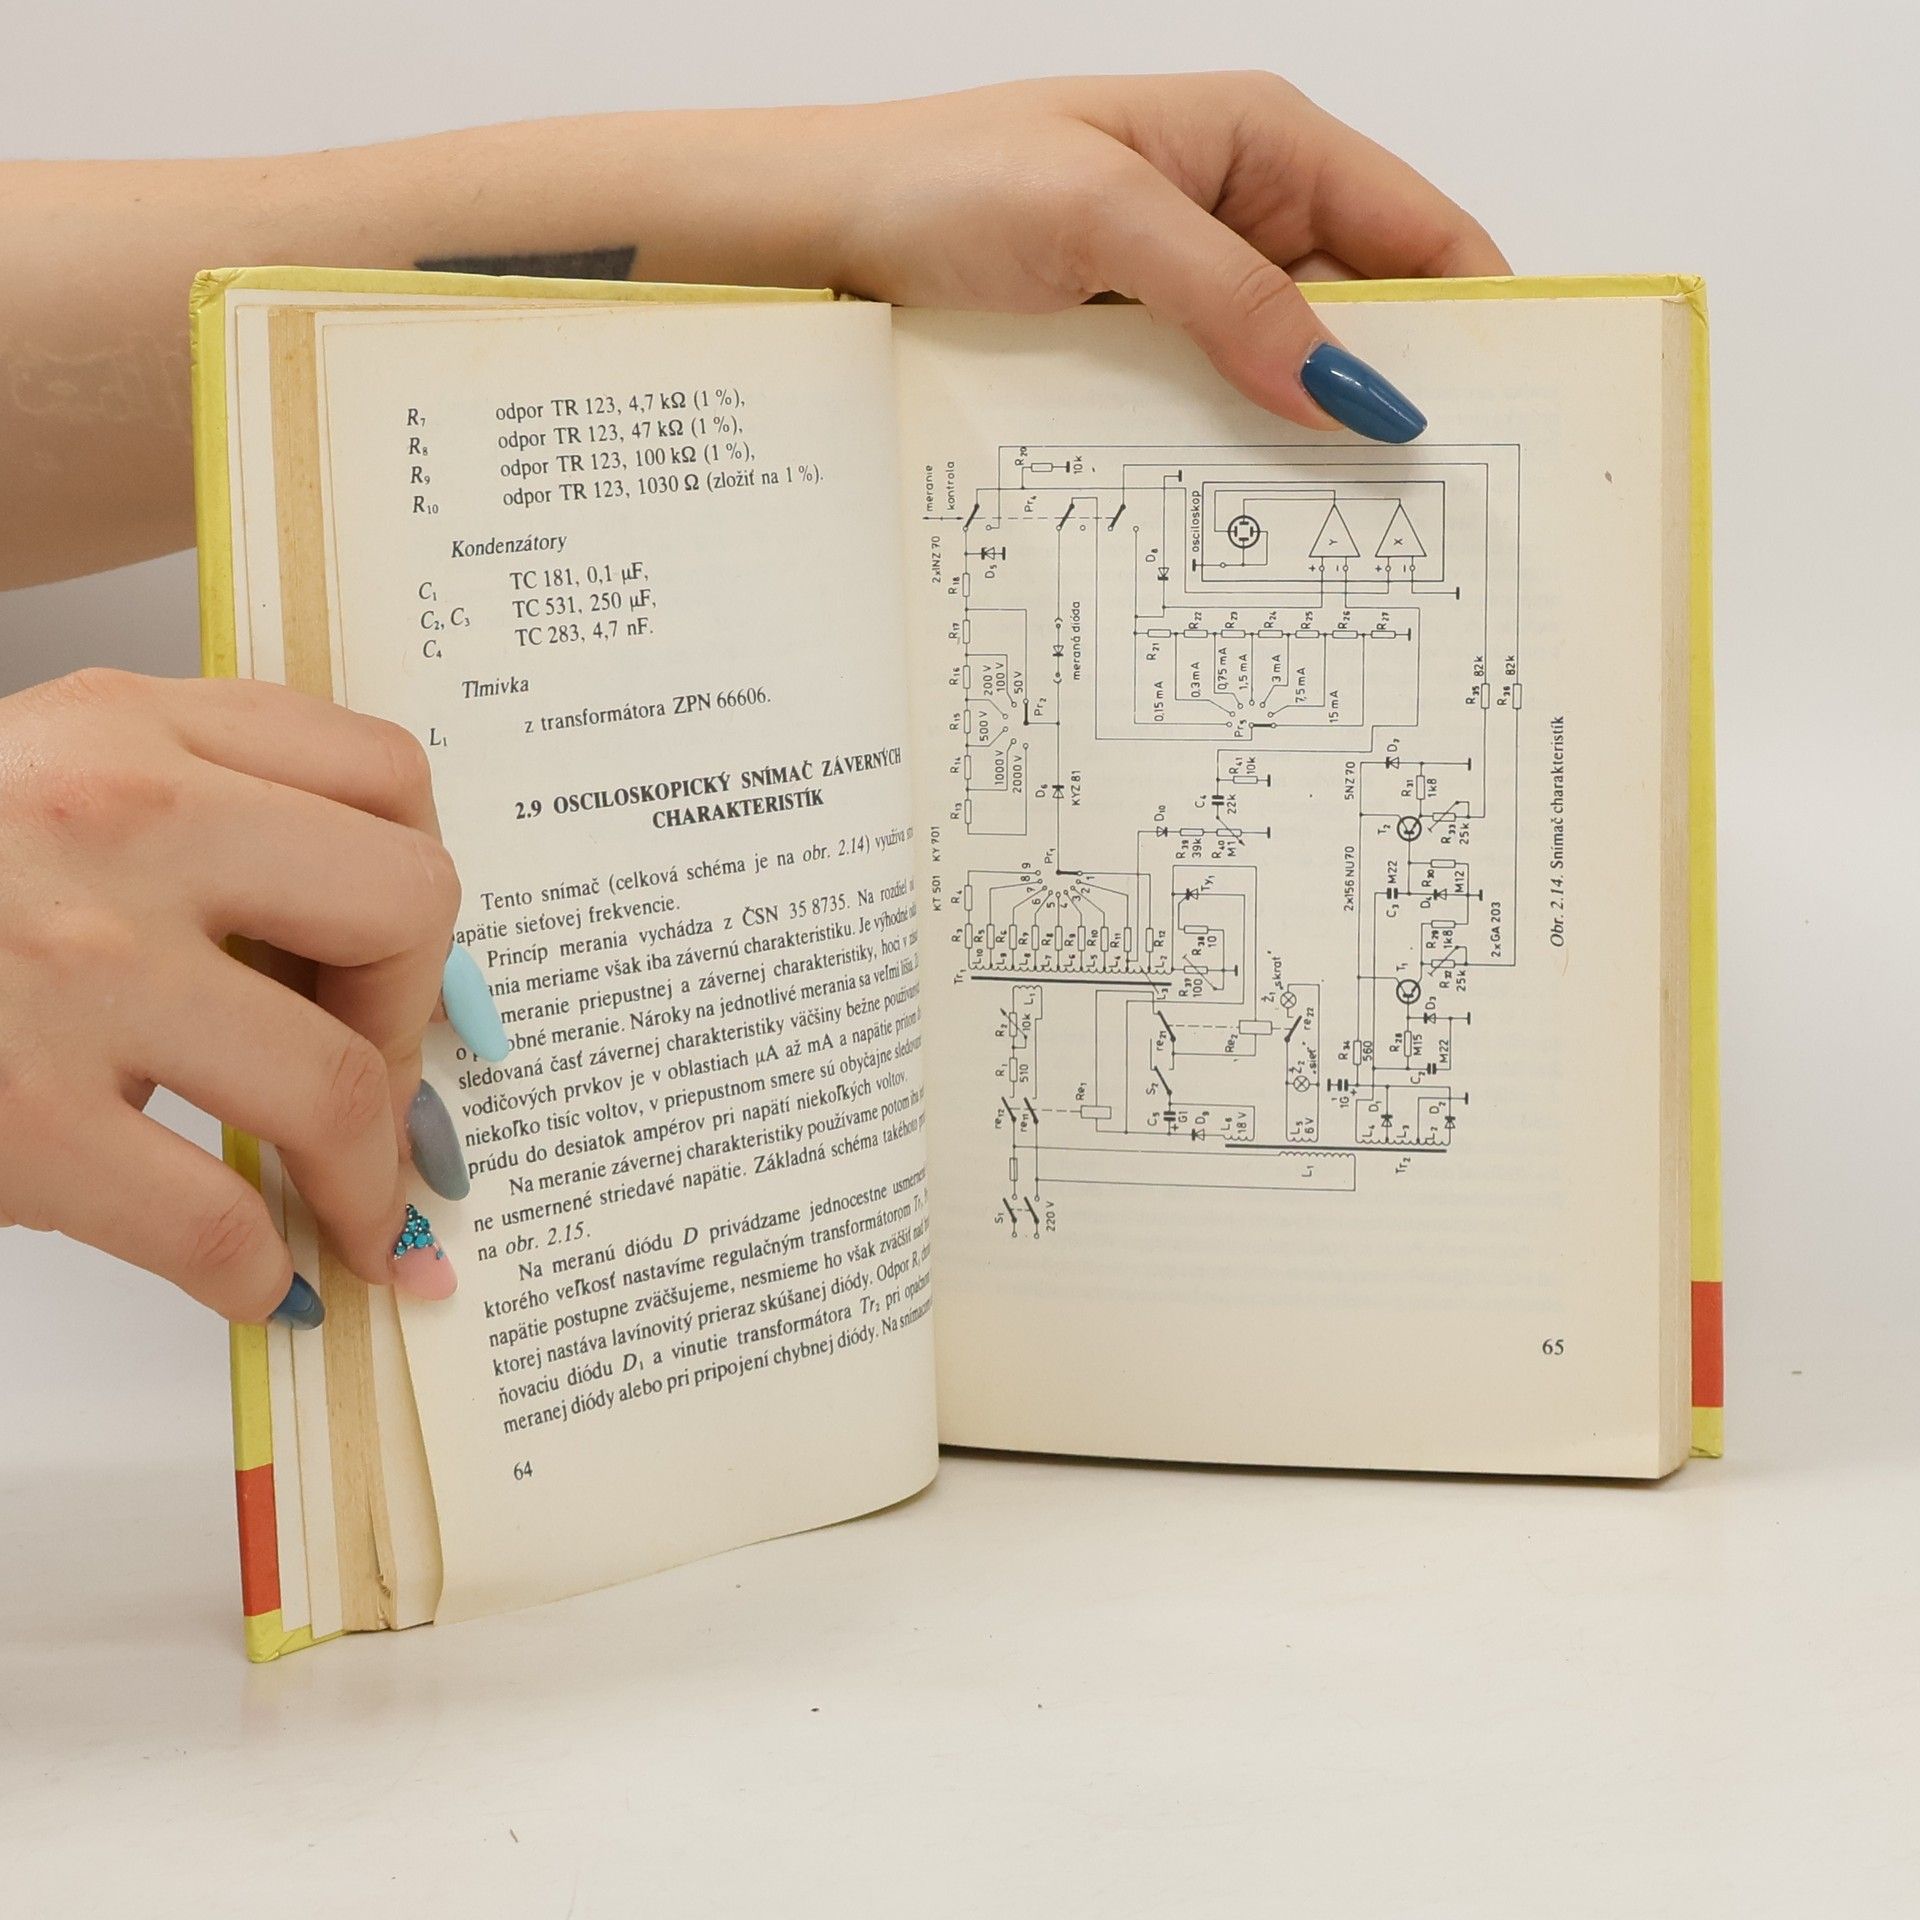 R₇ odpor TR 123, 4,7 kΩ (1 %),
R₈ odpor TR 123, 47 kΩ (1 %),
R₉ odpor TR 123, 100 kΩ (1 %),
R₁₀ odpor TR 123, 1030 Ω (zložiť na 1 %).
Kondenzátory
C₁ TC 181, 0,1 μF,
C₂, C₃ TC 531, 250 μF,
C₄ TC 283, 4,7 nF.
Tlmivka
L₁ z transformátora ZPN 66606.
2.9 OSCILOSKOPICKÝ SNÍMAČ ZÁVERNÝCH
CHARAKTERISTÍK
Tento snímač (celková schéma je na obr. 2.14) využíva
napätie sieťovej frekvencie.
Princíp merania vychádza z ČSN 35 8735. Na rozdiel
meriame však iba závernú charakteristiku. Je výhodné
meranie priepustnej a závernej charakteristiky, hoci v
meranie. Nároky na jednotlivé merania sa veľmi líšia.
sledovaná časť závernej charakteristiky väčšiny bežne
vodičových prvkov je v oblastiach μA až mA a napätie pritom
niekoľko tisíc voltov, v priepustnom smere sú obyčajne
prúdu do desiatok ampérov pri napätí niekoľkých voltov.
Na meranie závernej charakteristiky používame potom iba
ne usmernené striedavé napätie. Základná schéma takéhoto
na obr. 2.15.
Na meranú diódu D privádzame jednocestne
ktorého veľkosť nastavíme regulačným transformátorom Tr₁.
napätie postupne zväčšujeme, nesmieme ho však zväčšiť nad
ktorej nastáva lavínovitý prieraz skúšanej diódy. Odpor R₁
ňovaciu diódu D₁ a vinutie transformátora Tr₂ pri
meranej diódy alebo pri pripojení chybnej diódy. Na
64
meranie
kontrola
R₂₀
10k
Pr₄
2×1NZ 70
D₅
R₁₈
R₁₇
R₁₆
R₁₅
R₁₄
R₁₃
200 V
100 V
50 V
500 V
1000 V
2000 V
Pr₂
meraná dióda
D₆
KYZ 81
D₈
osciloskop
Y
X
+
−
+
−
R₂₁
R₂₂
R₂₃
R₂₄
R₂₅
R₂₆
R₂₇
0,15 mA
0,3 mA
0,75 mA
1,5 mA
3 mA
7,5 mA
15 mA
Pr₃
R₃₅ 82k
R₃₆ 82k
KT 501 KY 701
R₃
R₄
R₅
R₆
R₇
R₈
R₉
R₁₀
R₁₁
R₁₂
L₁₀
L₉
L₈
L₇
L₆
L₅
L₄
L₂
L₃
L₁
Tr₁
Pr₁
9
8
7
6
5
4
3
2
1
D₁₀
R₃₉
39k
R₄₀
M1
C₄
22k
R₄₁
10k
Ty₁
R₃₈
10
R₃₇
100
5NZ 70
D₇
R₃₁
1k8
T₂
R₃₃
25k
2×156 NU70
C₃ M22
D₄
R₃₀
M12
R₂₉
1k8
R₃₂
25k
T₁
2×GA 203
D₃
R₂₈
M15
C₂
M22
R₃₄
560
1G
D₁
D₂
L₄
L₃
L₂
Tr₂
L₁
L₅
6V
L₆
18V
Ž₁ „skrat"
Ž₂ „sieť"
re₂₂
re₂₁
Re₂
S₂
C₅
G1
D₉
Re₁
R₂
10k
R₁
510
re₁₂
re₁₁
S₁
220 V
Obr. 2.14. Snímač charakteristík
65